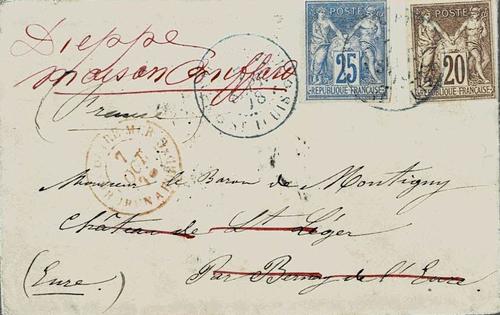 Dieppe
maison Bouffard
(France)
POSTE
25
REPUBLIQUE FRANÇAISE
POSTE
20
REPUBLIQUE FRANÇAISE
7
OCT
Monsieur le Baron de Montigny
Château de St Léger
Par Bernay de l'Eure
(Eure.)